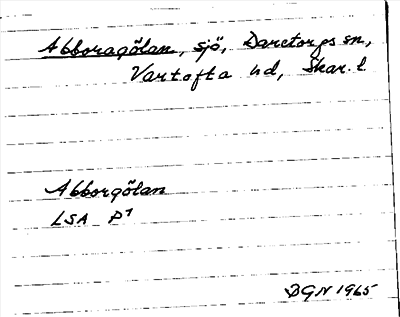 Abboragölan, sjö, Daretorps sn,
Vartofta hd, Skar. l
Abborgölan
LSA P7
BGN 1965